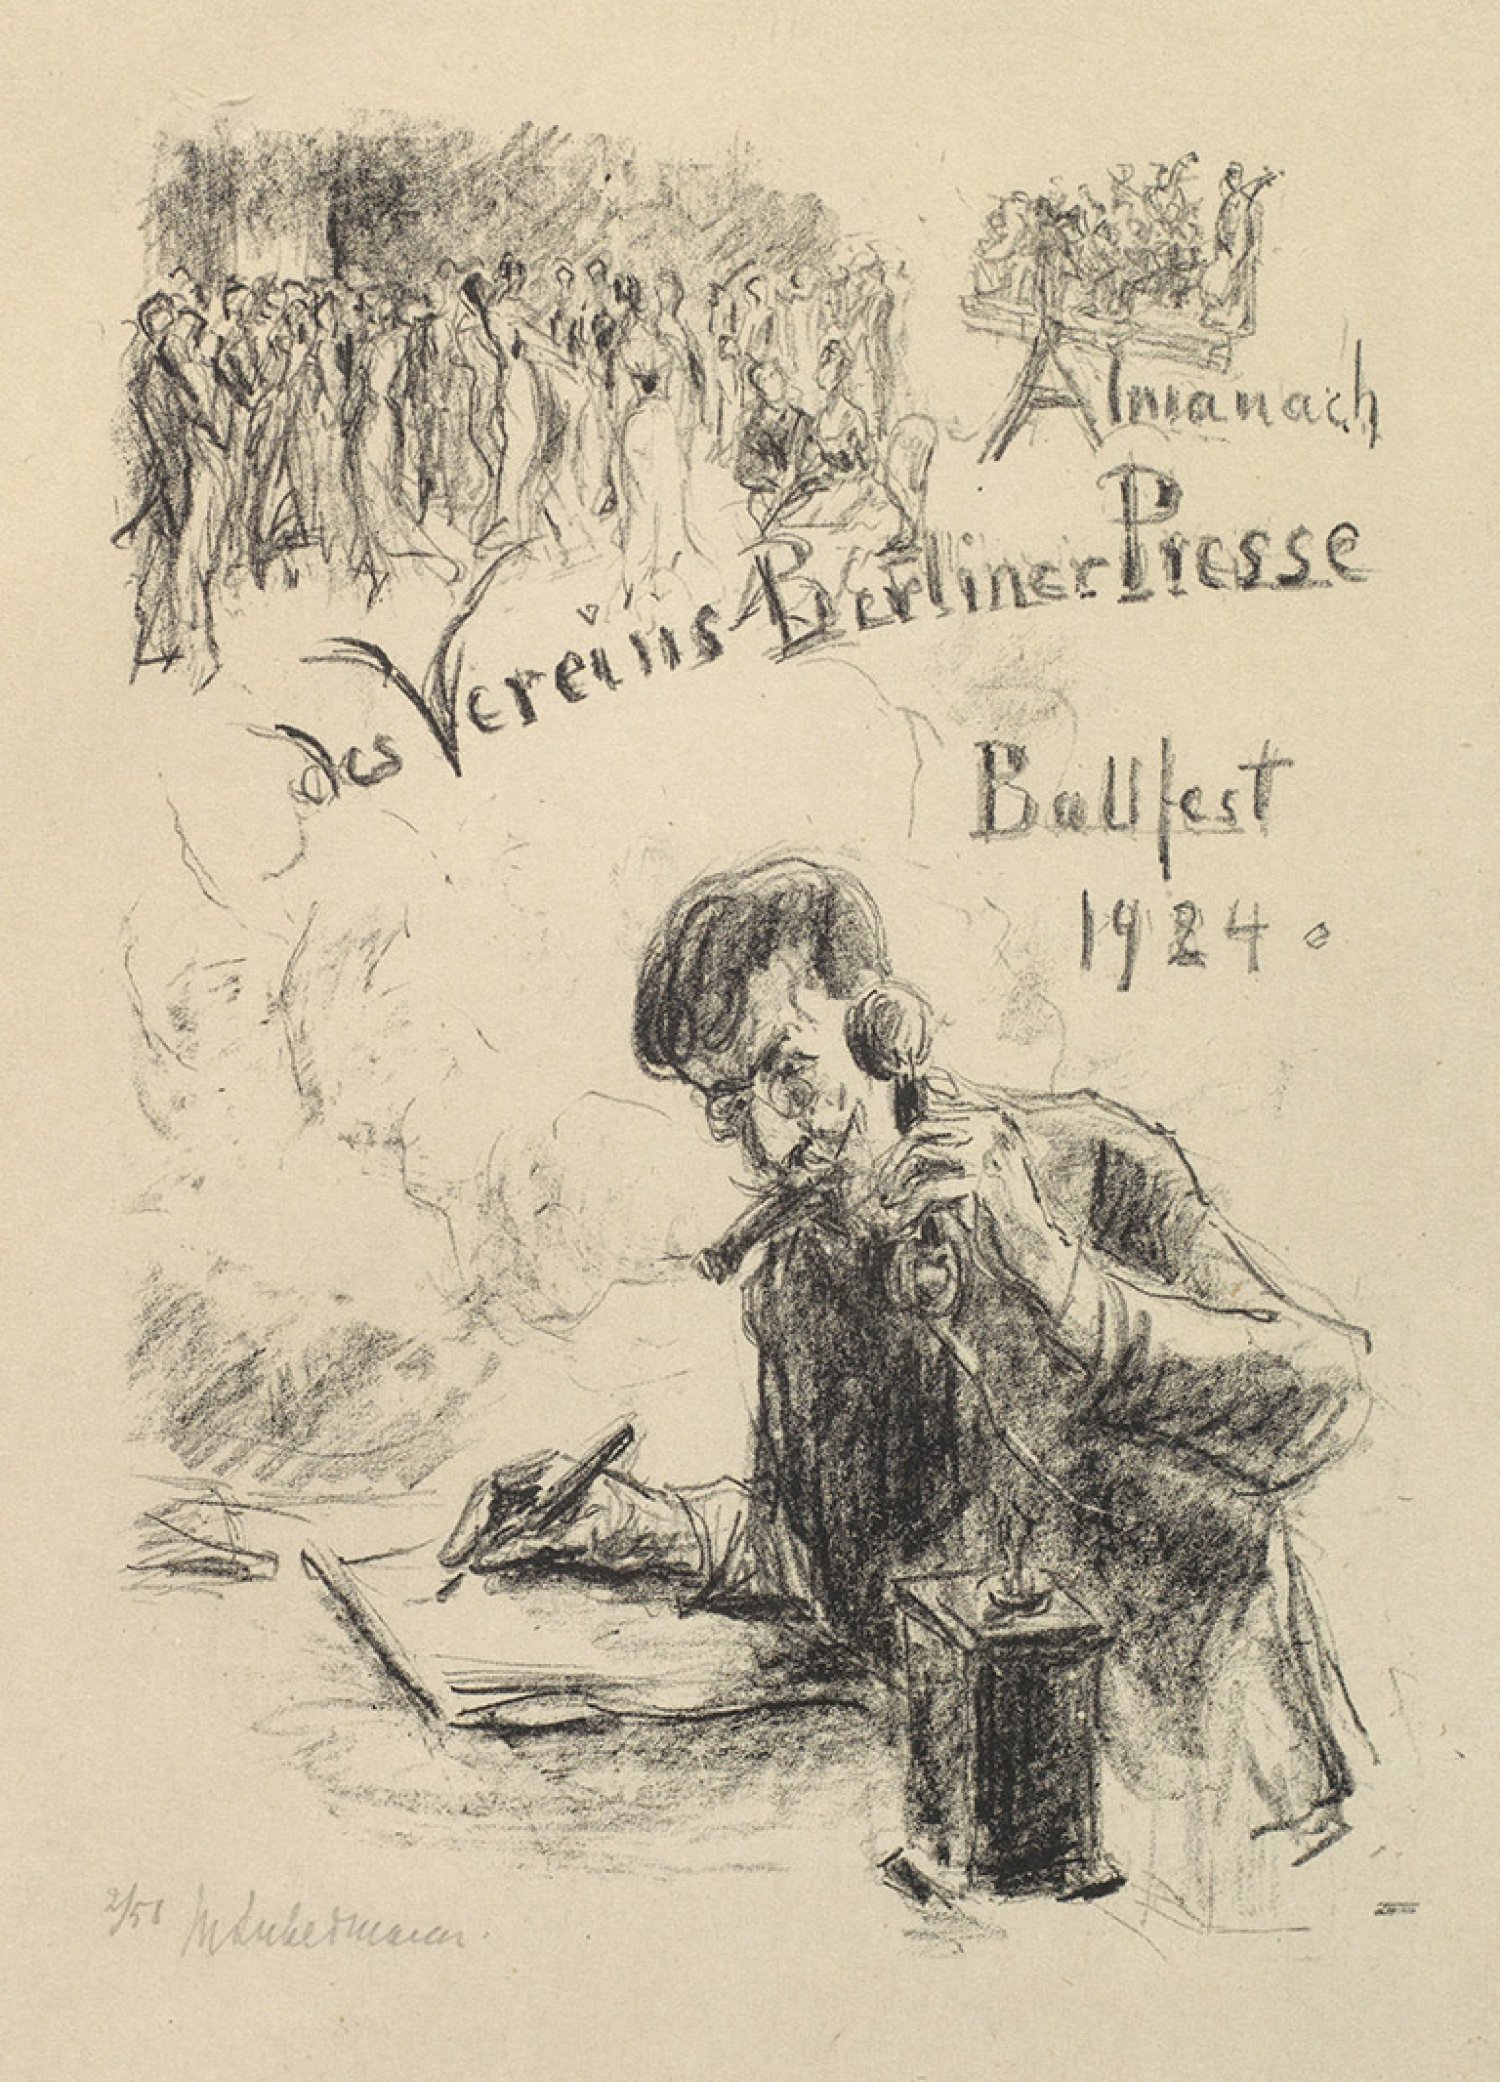 Almanach
des Vereins Berliner Presse
Ballfest
1924.
2/50 MLiebermann.